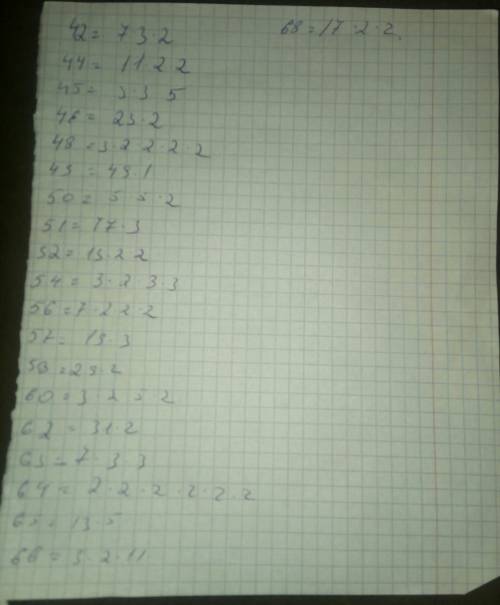 42 = 7 3·2
44 = 11 2 2
45 = 3·3 5
46 = 23·2
48 = 3·2 2·2·2
49 = 49 1
50 = 5 5·2
51 = 17·3
52 = 13·2 2
54 = 3·2 3·3
56 = 7·2 2·2
57 = 19·3
58 = 29·2
60 = 3·2 5·2
62 = 31·2
63 = 7·3·3
64 = 2·2·2·2·2·2
65 = 13·5
66 = 3·2·11
68 = 17·2·2.